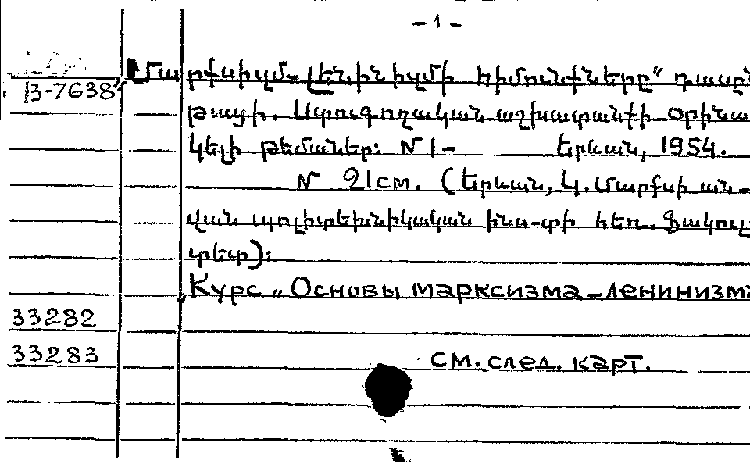 - 1 -
Մարքսիզմ-լենինիզմի հիմունքները" դասըն
թացի. Ստուգողական աշխատանքի օրինա
В-7638
կելի թեմաներ: N 1- Երևան, 1954.
N 21см. (Երևան, Կ. Մարքսի ան-
վան պոլիտեխնիկական ինս-տի հեռ. ֆակուլ
տետ):
Курс „Основы марксизма-ленинизма
33282
33283 см. след. карт.